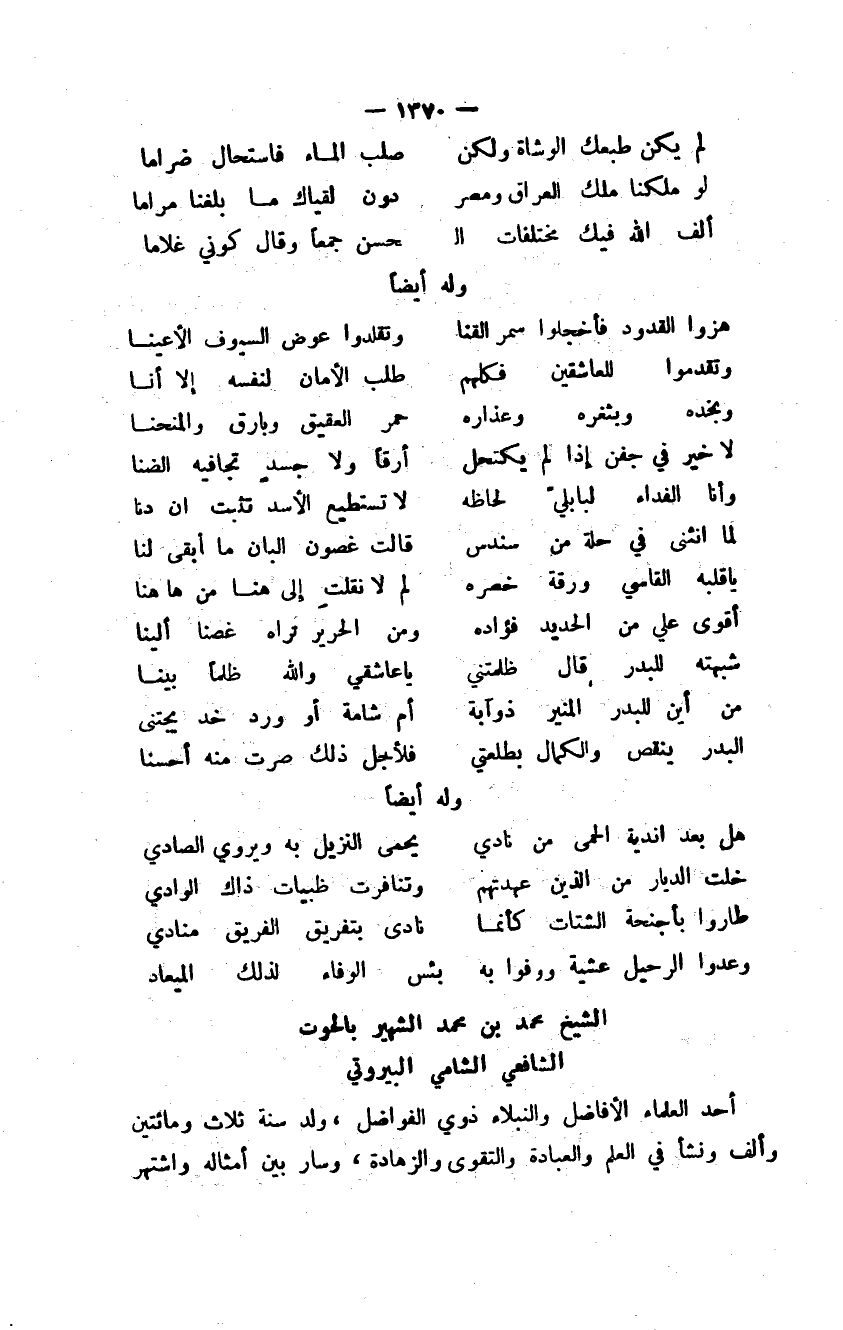 — ١٣٧٠ —
لم يكن طبعك الوشاة ولكن صلب الماء فاستحال ضراما
لو ملكنا ملك العراق ومصر دون لقياك مـا بلغنا مراما
ألف الله فيك مختلفات الـ حسن جمعاً وقال كوني غلاما
وله أيضاً
هزوا القدود فأخجلوا سمر القنا وتقلدوا عوض السيوف الأعينـا
وتقدموا للعاشقين فكلهم طلب الأمان لنفسه إلا أنـا
وبخده وبثغره وعذاره حمر العقيق وبارق والمنحنـا
لا خير في جفن إذا لم يكتحل أرقاً ولا جسدٍ تجافيه الضنا
وأنا الفداء لبابليّ لحاظه لا تستطيع الأسد تثبت ان دنا
لما انثنى في حلة من سندس قالت غصون البان ما أبقى لنا
ياقلبه القاسي ورقة خصره لم لا نقلتِ إلى هنـا من ها هنا
أقوى علي من الحديد فؤاده ومن الحرير تراه غصنا ألينا
شبهته للبدر قال ظلمتني ياعاشقي والله ظلماً بينـا
من أين للبدر المنير ذوآبة أم شامة أو ورد خد يجتنى
البدر ينقص والكمال بطلعتي فلأجل ذلك صرت منه أحسنا
وله أيضاً
هل بعد اندية الحمى من نادي يحمى النزيل به ويروي الصادي
خلت الديار من الذين عهدتهم وتنافرت ظبيات ذاك الوادي
طاروا بأجنحة الشتات كأنمـا نادى بتفريق الفريق منادي
وعدوا الرحيل عشية ووفوا به بئس الوفاء لذلك الميعاد
الشيخ محمد بن محمد الشهير بالحوت
الشافعي الشامي البيروتي
أحد العلماء الأفاضل والنبلاء ذوي الفواضل ، ولد سنة ثلاث ومائتين
وألف ونشأ في العلم والعبادة والتقوى والزهادة ، وسار بين أمثاله واشتهر